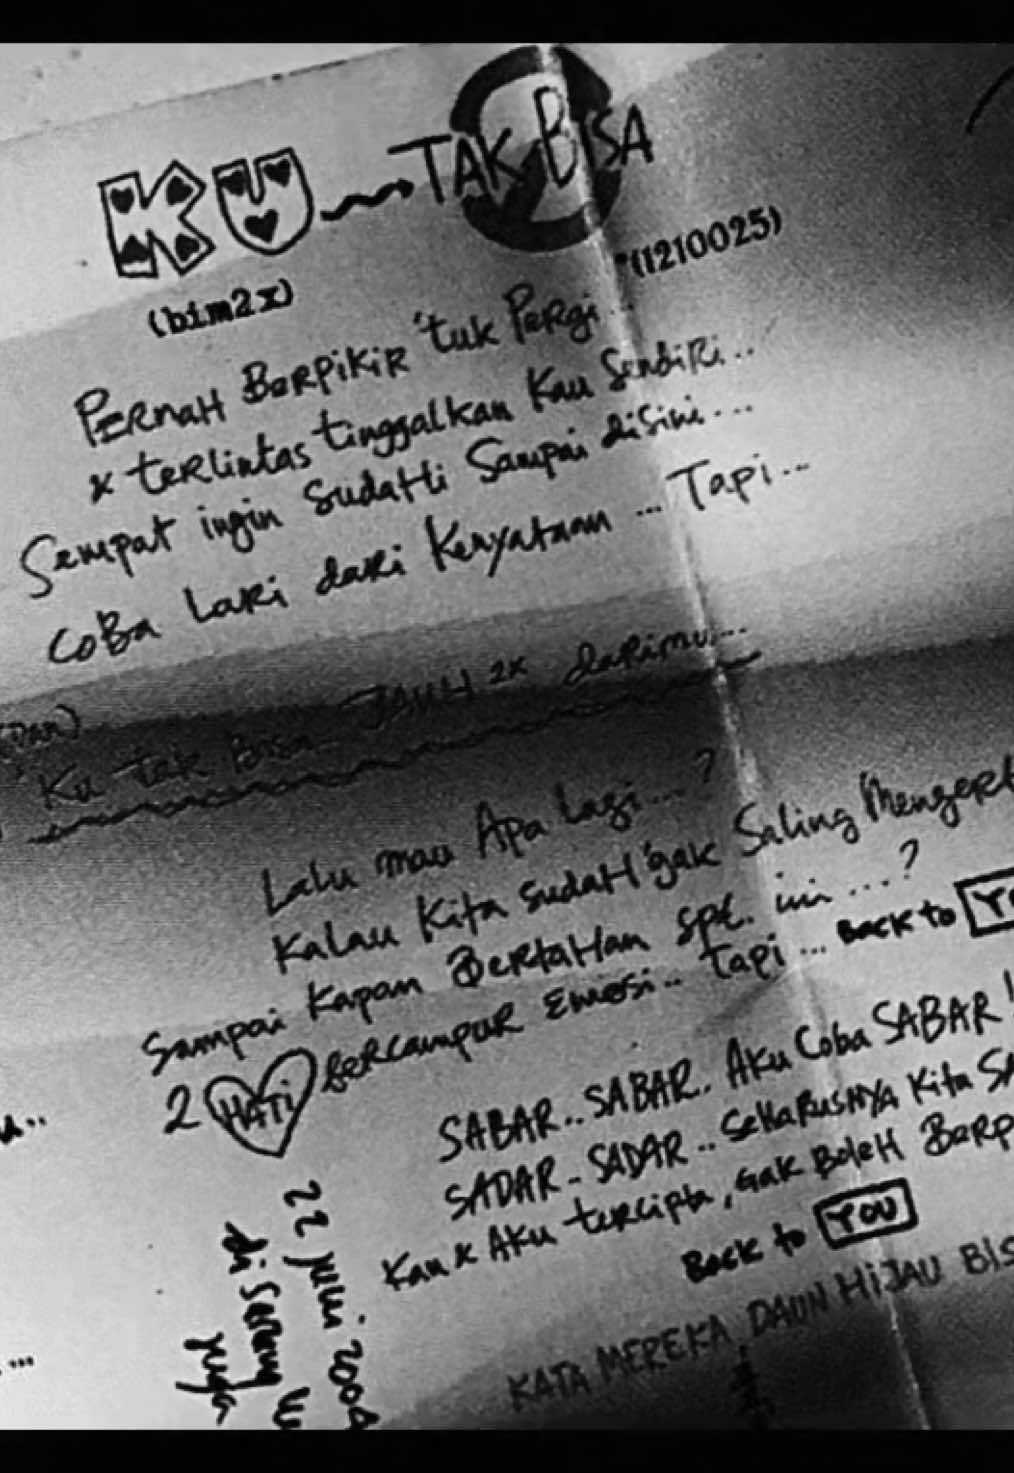 KU → TAK BISA
(bim2x)
"(1210025)
PERNAH BERPIKIR 'tuk PERgi...
x teRlintas tinggalkan Kau SendiRi...
Sempat ingin sudaHi Sampai disini...
COBA LaRi daRi Kenyataan ... Tapi...
(DAN)
"Ku tak Bisa JAUH 2x daRimu...
Lalu mau Apa Lagi...?
Kalau Kita sudaH 'gak Saling Mengert
Sampai Kapan BERtaHan spt. ini ...?
2 HATi BERcampuR Emosi.. tapi ... Back to YO
SABAR.. SABAR.. AKu Coba SABAR!
SADAR.. SADAR.. SeHaRusNYA Kita SA
Kau x AKu teRcipta, GaK BoleH BERP
Back to YOU
KATA MEREKA DAUN HiJAU BIS
22 Juni 2004
di
juga